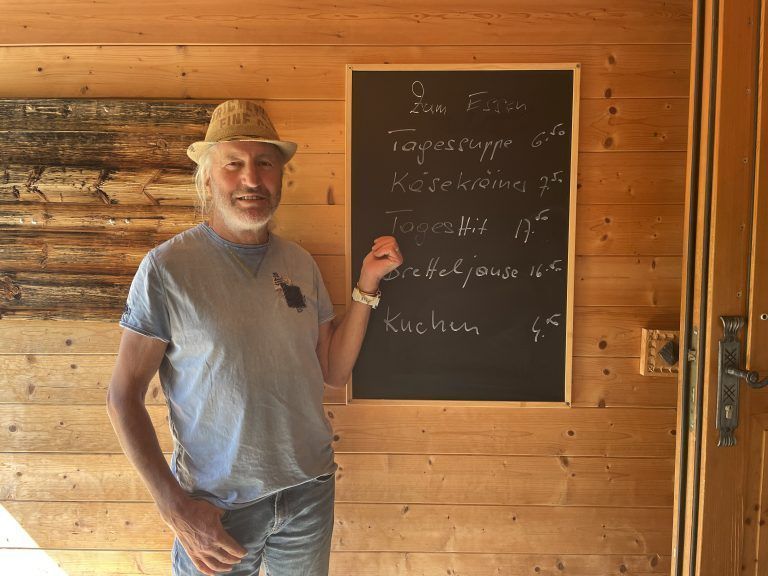 Zum Essen
Tagessuppe 6.50
Käsekräiner 7.50
TagesHit 17.50
Bretteljause 16.50
Kuchen 4.50